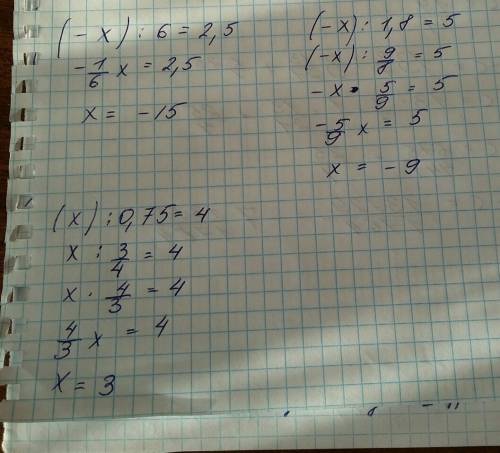 (-x) : 6 = 2,5
-1/6 x = 2,5
x = -15
(-x) : 1,8 = 5
(-x) : 9/8 = 5
-x · 5/9 = 5
-5/9 x = 5
x = -9
(x) : 0,75 = 4
x : 3/4 = 4
x · 4/3 = 4
4/3 x = 4
x = 3